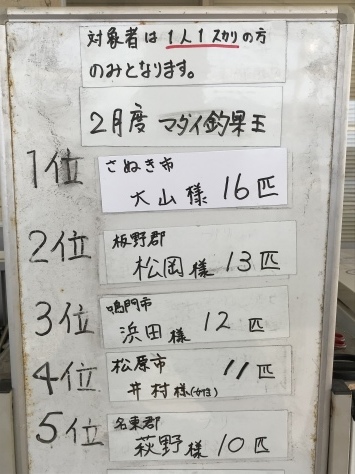 対象者は1人1スカリの方
のみとなります。
2月度 マダイ釣果王
1位 さぬき市
大山様 16匹
2位 板野郡
松岡様 13匹
3位 鳴門市
浜田様 12匹
4位 松原市 11匹
井村様
5位 名東郡
萩野様 10匹